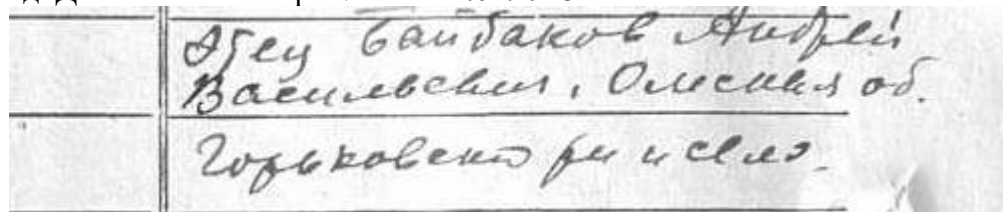 Отец Байбаков Андрей
Васильевич, Омская об.
Горьковский рн и село.